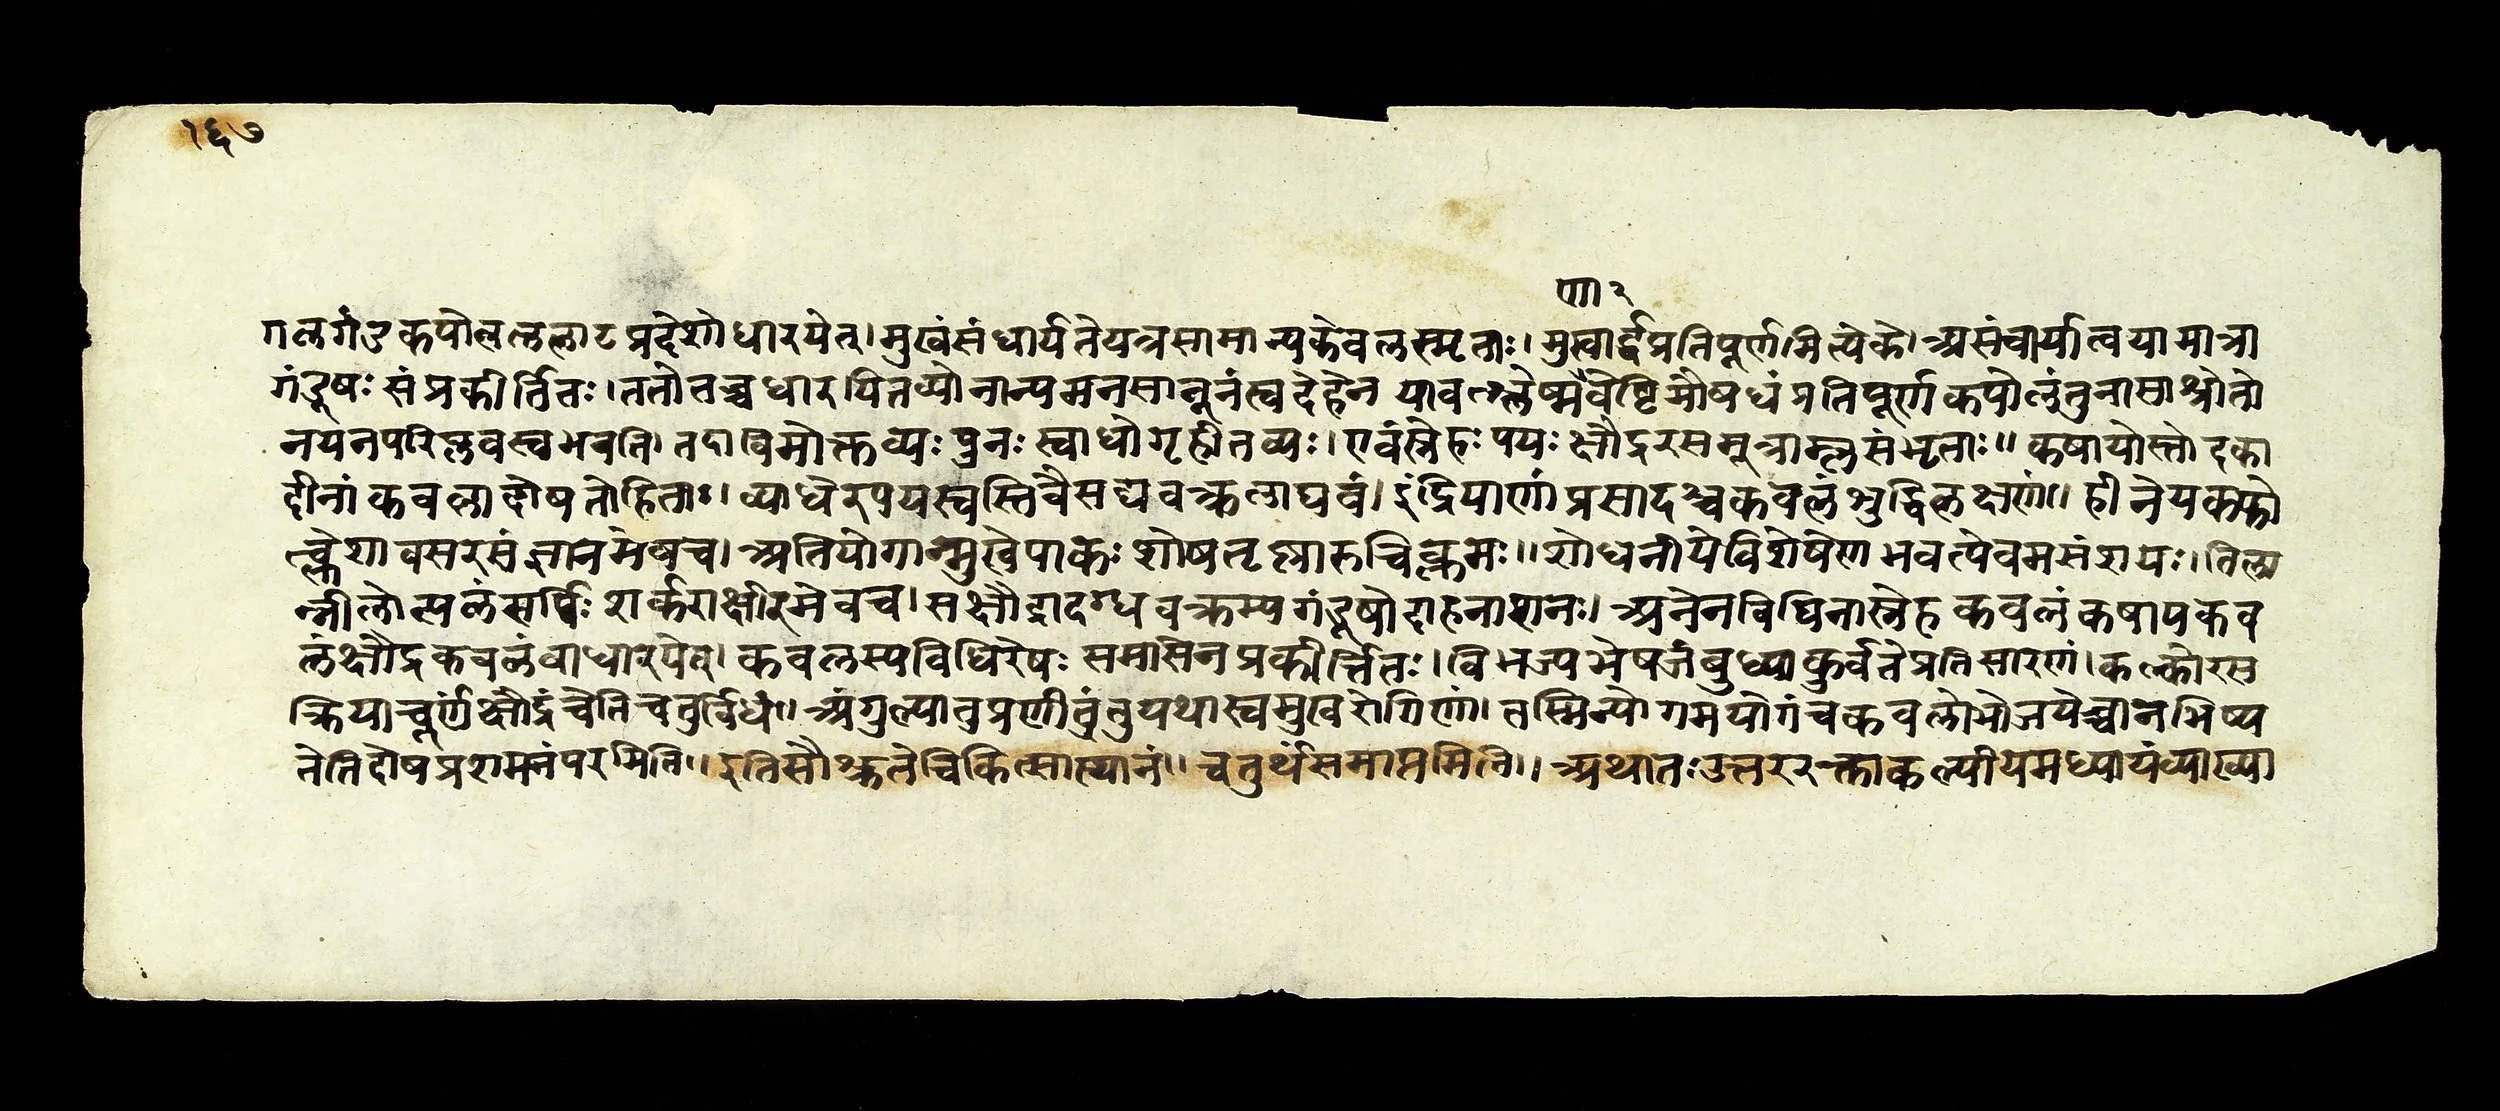 १६७
णा २
गलगंडकपोलललाटप्रदेशोधारयेत्। मुखंसंधार्यतेयत्रसामान्यकेवलस्मृताः। मुखार्द्धप्रतिपूर्ण।मित्येके। असंचार्यात्वयामात्रा
गंडूषः संप्रकीर्तितः। ततोतच्चधारयितव्योनान्यमनसानूनंस्वदेहेन यावत्श्लेष्मवेष्टिमौषधंप्रतिपूर्णकपोलंतुनासाश्रोतो
नयनपरिप्लवस्वभवति। तदाविमोक्तव्यः पुनः स्वाधौगृहीतव्यः। एवंस्नेहः पयः क्षौद्ररसमूत्राम्लसंभृताः॥ कषायोस्तोदका
दीनां कवलादोषतोहिताः। व्याधेरपयस्वस्तिवैसद्यवक्त्रलाघवं। इंद्रियाणां प्रसादश्चकवलंशुद्धिलक्षणं॥ हीनेयकफो
त्क्लेशावसरसंज्ञानमेषच। अतियोगान्मुखेपाकः शोषतृष्णारुचिक्लमः॥ शोधनीयेविशेषेणभवत्येवमसंशयः। तिला
न्नीलोत्पलंसर्पिः शर्कराक्षीरमेवच। सक्षौद्रादग्धवक्त्रस्यगंडूषोदाहनाशनः। अनेनविधिनास्नेहकवलंकषायकव
लंक्षौद्रकवलंवाधारयेत्। कवलस्यविधिरेषः समासेनप्रकीर्त्तितः। विभज्यभेषजंबुध्याकुर्वतेप्रतिसारणं। कल्कोरस
क्रियाचूर्णक्षौद्रंचेतिचतुर्विधं॥ अंगुल्यातुप्रणीतुंतुयथास्वमुखरोगिणां। तस्मिन्योगमयोगंचकवलोभोजयेच्चानभिष्य
तेतिदोषप्रशमनंपरमिति॥ इतिसौश्रुतेचिकित्सास्थानं॥ चतुर्थंसमाप्तमिति॥ अथातःउत्तररक्ताकल्पीयमध्यायंव्याख्या